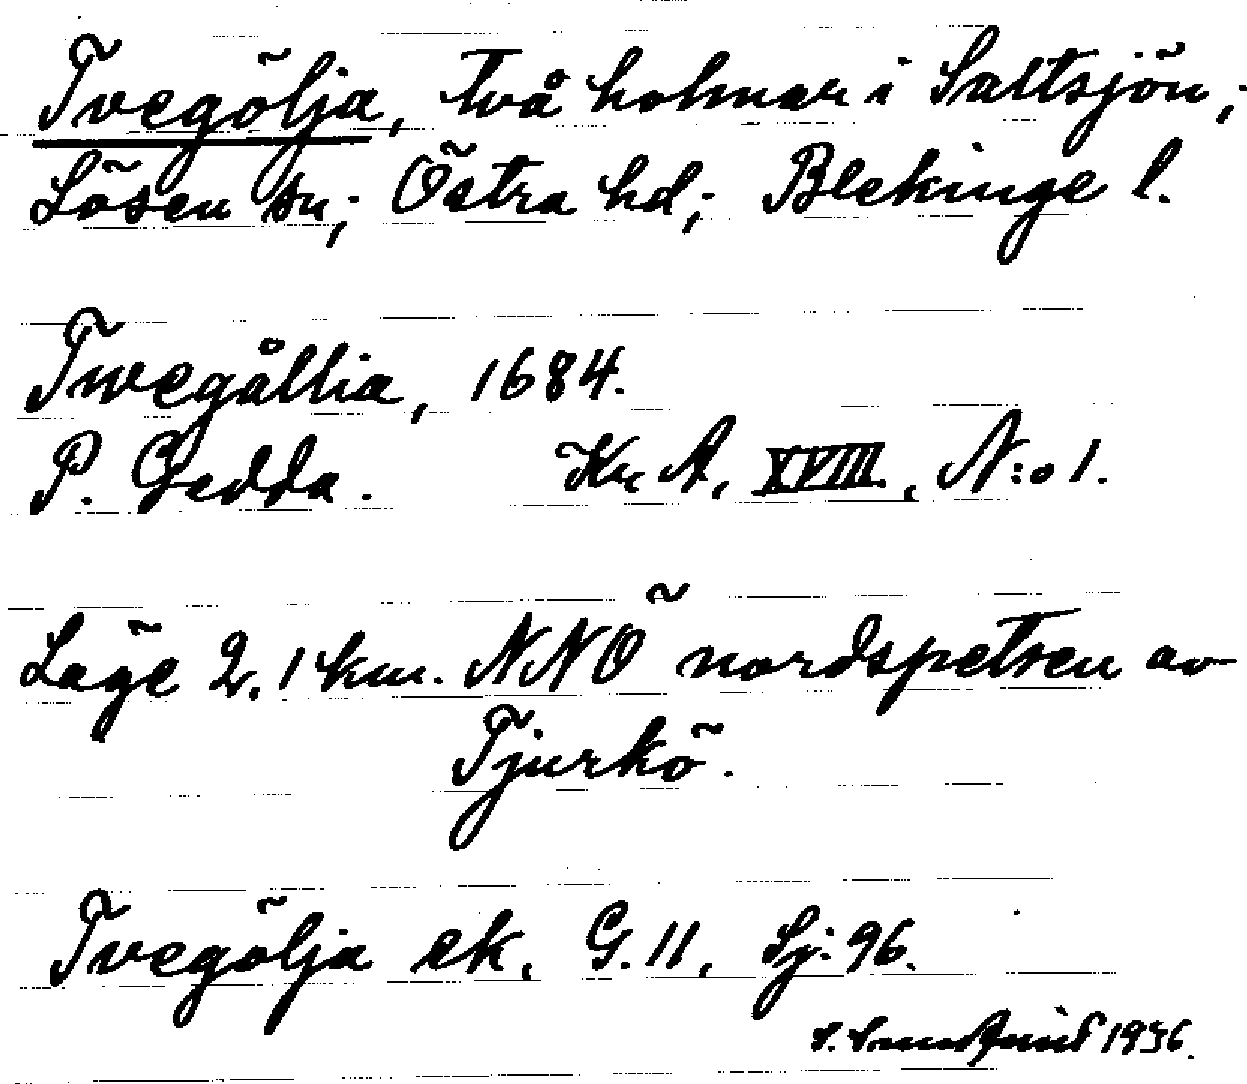 Tvegölja, två holmar i Saltsjön;
Lösen sn; Östra hd; Blekinge l.
Twegållia, 1684.
P. Gedda. Kr A, XVIII., N:o 1.
Läge 2,1 km. NNÖ nordspetsen av
Tjurkö.
Tvegölja ek. G. 11, Sj: 96.
1936.